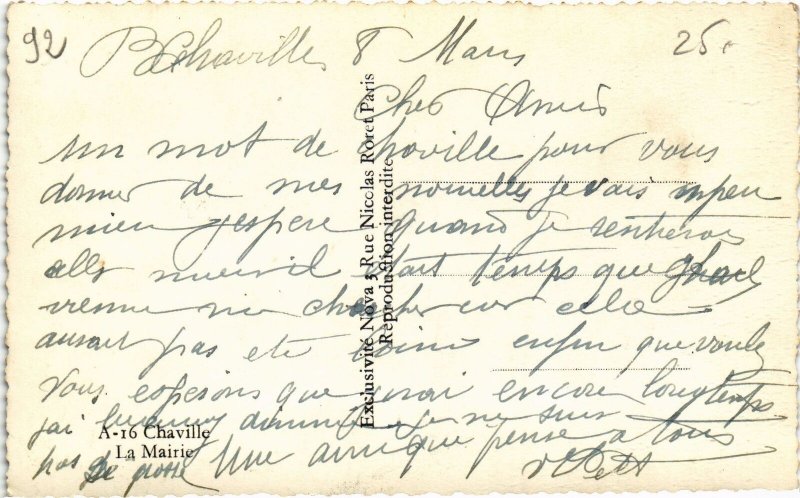 92
Chaville 8 Mars
25
Cher Amis
un mot de chaville pour vous
donner de mes nouvelles je vais unpeu
mieu j'espere quand je rentrerai
elle il etait temps que
vienne me chercher car cela
aurait pas ete enfin que voule
vous esperons que vivrai encore longtemps
j'ai je ne suis
pas Une amie que pense a tous
A-16 Chaville
La Mairie
Exclusivité Nova 5 Rue Nicolas Roret Paris
Reproduction interdite